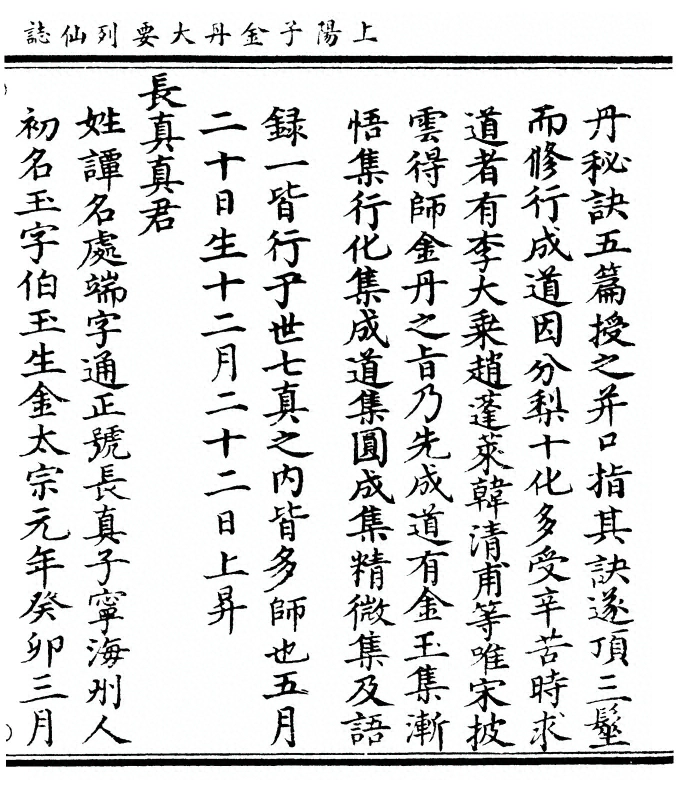 上陽子金丹大要列仙誌
丹秘訣五篇授之并口指其訣遂頂三髽
而修行成道因分梨十化多受辛苦時求
道者有李大乗趙蓬萊韓清甫等唯宋披
雲得師金丹之旨乃先成道有金玉集漸
悟集行化集成道集圓成集精微集及語
録一皆行于世七真之内皆多師也五月
二十日生十二月二十二日上昇
長真真君
姓譚名處端字通正號長真子寧海州人
初名玉字伯玉生金太宗元年癸卯三月